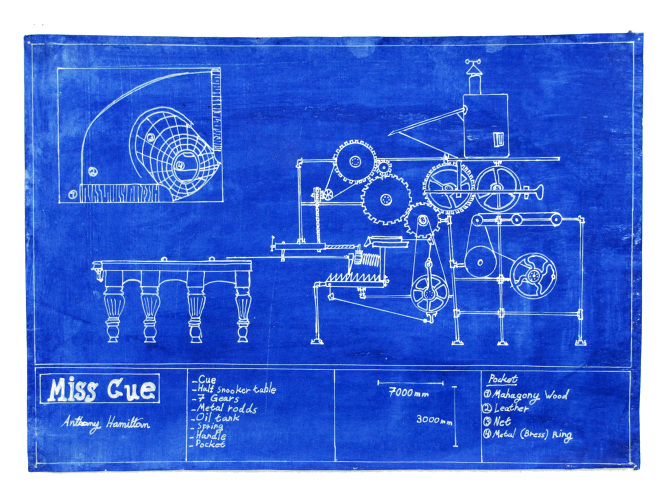 ①
②
③
④
Miss Cue
Anthony Hamilton
- Cue
- Half Snooker table
- 7 Gears
- Metal rodds
- Oil tank
- Spring
- Handle
- Pocket
7000mm
3000mm
Pocket
① Mahagony Wood
② Leather
③ Net
④ Metal (Bress) Ring